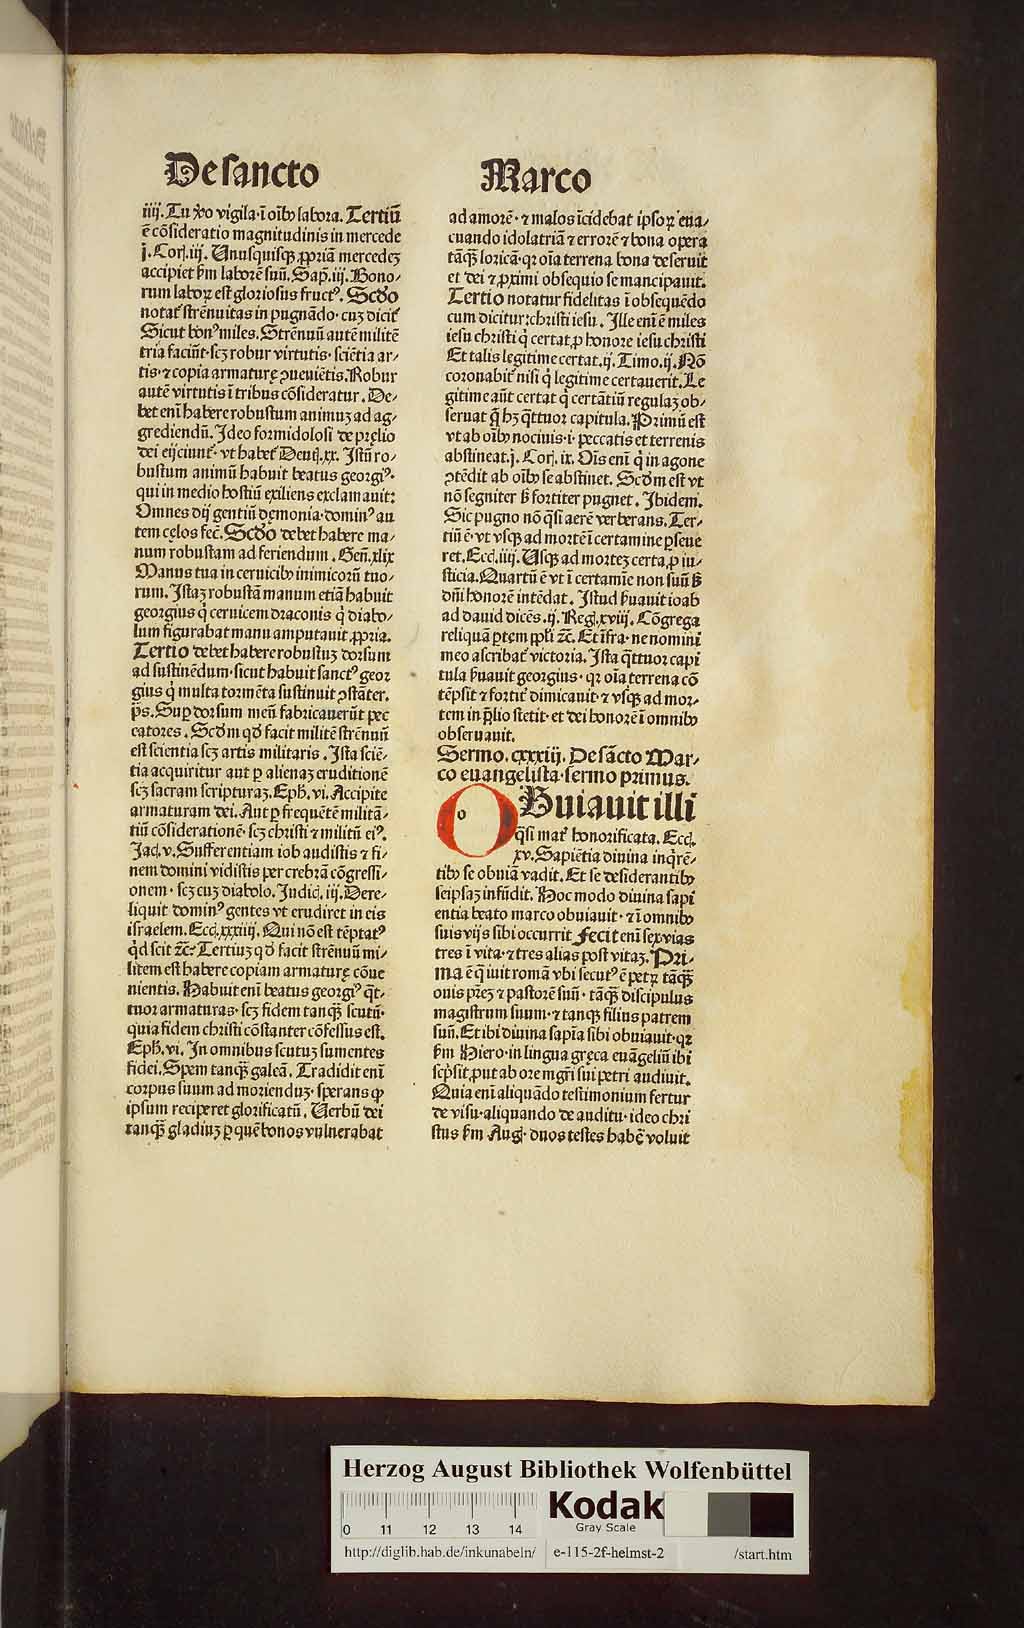 De sancto Marco
iiij. Tu ꝟo vigila·ī oībꝰ labora. Tertiū
ē cōsideratio magnitudinis in mercede
j. Corj. iij. Unusquisqꝫ ꝓpriā mercedeꝫ
accipiet ẜm laborē suū. Sap̄. iij. Bono⸗
rum laboꝝ est gloriosus fructꝰ. Scd̄o
notat᷑ strēnuitas in pugnādo· cuꝫ dicit᷑
Sicut bonꝰ miles. Strēnuū autē militē
tria faciūt· scꝫ robur virtutis· sciētia ar⸗
tis· ⁊ copia armaturę ꝯueniētis. Robur
autē virtutis ī tribus cōsideratur. De⸗
bet enī habere robustum animuꝫ ad ag⸗
grediendū. Ideo formidolosi de pręlio
dei eijciunt᷑· vt habet᷑ Deuṭ. xx. Istū ro⸗
bustum animū habuit beatus georgiꝰ·
qui in medio hostiū exiliens exclamauit:
Omnes dij gentiū dęmonia· dominꝰ au
tem cęlos fec̄. Scd̄o debet habere ma⸗
num robustam ad feriendum. Gen̄. xlix
Manus tua in ceruicibꝰ inimicorū tuo⸗
rum. Istaꝫ robustā manum etiā habuit
georgius q̇ ceruicem draconis q̇ diabo⸗
lum figurabat manu amputauit ꝓpria.
Tertio debet habere robustuꝫ dorsum
ad sustinēdum· sicut habuit sanctꝰ geor
gius q̇ multa tormēta sustinuit ꝯstāter.
p̄s. Sup̄ dorsum meū fabricauerūt pec
catores. Scd̄m qd̄ facit militē strēnuū
est scientia scꝫ artis militaris. Ista sciē⸗
tia acquiritur aut ꝑ alienaꝫ eruditionē
scꝫ sacram scripturaꝫ. Eph̄. vi. Accipite
armaturam dei. Aut ꝑ frequētē militā⸗
tiū cōsiderationē· scꝫ christi ⁊ militū eiꝰ.
Jac̣. v. Sufferentiam iob audistis ⁊ fi⸗
nem domini vidistis per crebrā cōgressi⸗
onem· scꝫ cuꝫ diabolo. Judic̣. iij. Dere⸗
liquit dominꝰ gentes vt erudiret in eis
israelem. Ecc̣. xxxiiij. Qui nō est tēptatꝰ
q̇d scit ⁊c̄· Tertiuꝫ qd̄ facit strēnuū mi⸗
litem est habere copiam armaturę cōue
nientis. Habuit enī beatus georgiꝰ q̄t⸗
tuor armaturas· scꝫ fidem tanqꝫ̄ scutū·
quia fidem christi cōstanter cōfessus est.
Eph̄. vi. In omnibus scutuꝫ sumentes
fidei. Spem tanqꝫ̄ galeā. Tradidit enī
corpus suum ad morienduꝫ· sperans ꝙ
ipsum reciperet glorificatū. Uerbū dei
tanqꝫ̄ gladiuꝫ ꝑ quē bonos vulnerabat
ad amorē· ⁊ malos īcidebat ipsoꝝ eua⸗
cuando idolatriā ⁊ errorē ⁊ bona opera
tāqꝫ̄ loricā· qꝛ oīa terrena bona deseruit
et dei ⁊ ꝓximi obsequio se mancipauit.
Tertio notatur fidelitas ī obsequēdo
cum dicitur: christi iesu. Ille enī ē miles
iesu christi q̇ certat ꝓ honore iesu christi
Et talis legitime certat. ij. Timo. ij. Nō
coronabit᷑ nisi q̇ legitime certauerit. Le
gitime aūt certat q̇ certātiū regulaꝫ ob⸗
seruat q̄ hꝫ q̄ttuor capitula. Primū est
vt ab oībꝰ nociuis· i· peccatis et terrenis
abstineat. j. Corj. ix. Oīs enī q̇ in agone
ꝯtēdit ab oībꝰ se abstinet. Scd̄m est vt
nō segniter ẜꝫ fortiter pugnet. Ibidem.
Sic pugno nō q̄si aerē verberans. Ter⸗
tiū ē· vt vsqꝫ ad mortē ī certamine ꝑseue
ret. Ecc̣. iiij. Usqꝫ ad morteꝫ certa ꝓ iu⸗
sticia. Quartū ē vt ī certamīe non suū ẜꝫ
dn̄i honorē intēdat. Istud ẜuauit ioab
ad dauid dicēs. ij. Reg̣. xviij. Cōgrega
reliquā ꝑtem pp̄li ⁊c̄. Et īfra· ne nomini
meo ascribat᷑ victoria. Ista q̄ttuor capi
tula ẜuauit georgius· qꝛ oīa terrena cō
tēpsit ⁊ fortit᷑ dimicauit· ⁊ vsqꝫ ad mor⸗
tem in p̄lio stetit· et dei honorē ī omnibꝰ
obseruauit.
Sermo. cxxxiij. De sācto Mar⸗
co euangelista· sermo primus.
o Buiauit illi
q̄si mat᷑ honorificata. Ecc̣.
xv. Sapiētia diuina inq̇rē⸗
tibꝰ se obuiā vadit. Et se desiderantibꝰ
seipsaꝫ infūdit. Hoc modo diuina sapi
entia beato marco obuiauit· ⁊ ī omnibꝰ
suis vijs sibi occurrit Fecit enī sex vias
tres ī vita· ⁊ tres alias post vitaꝫ. Pri⸗
ma ē q̄ iuit romā vbi secutꝰ ē petꝝ tāqꝫ̄
ouis p̄reꝫ ⁊ pastorē suū· tāqꝫ̄ discipulus
magistrum suum· ⁊ tanqꝫ̄ filius patrem
suū. Et ibi diuina sapīa sibi obuiauit· qꝛ
ẜm Hiero· in lingua gręca euāgeliū ibi
scp̄sit ꝓut ab ore mgr̄i sui petri audiuit.
Quia enī aliquādo testimonium fertur
de visu· aliquando de auditu· ideo chri
stus ẜm Aug̣· duos testes habē voluit
Herzog August Bibliothek Wolfenbüttel
0 11 12 13 14
Kodak
Gray Scale
http://diglib.hab.de/inkunabeln/ e-115-2f-helmst-2 /start.htm